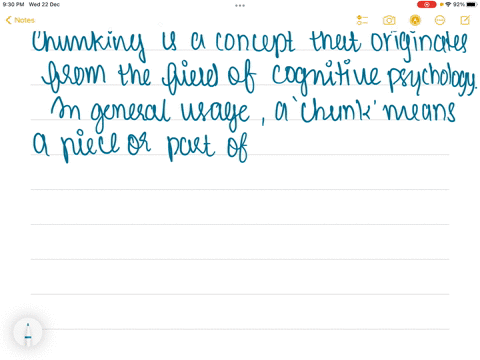 9:30 PM Wed 22 Dec
92%
Notes
Chunking is a concept that originates
from the field of cognitive psychology.
In general usage, a 'chunk' means
a piece or part of